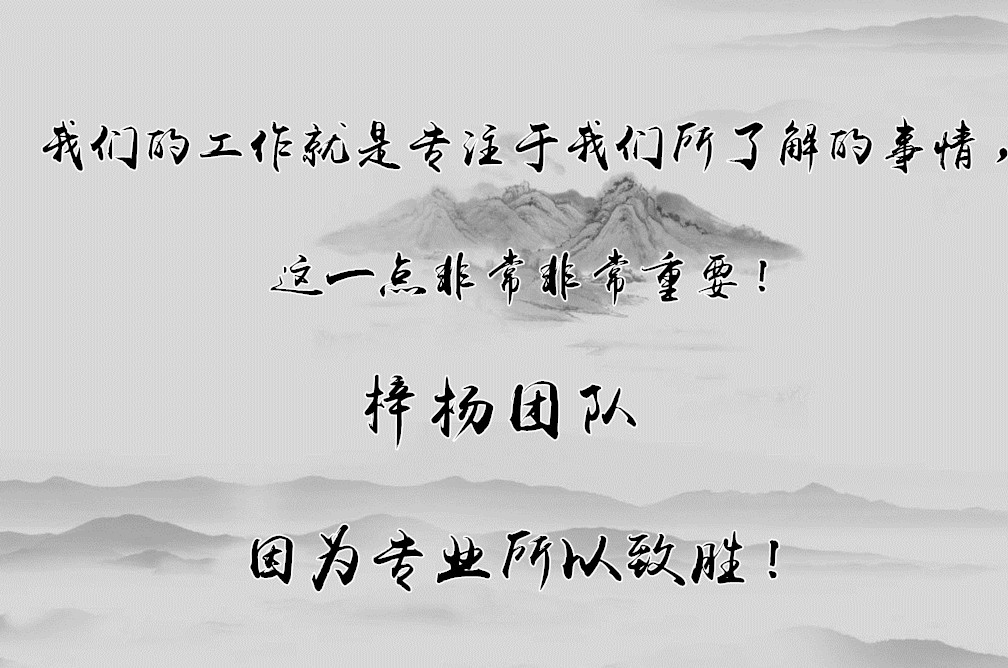 我们的工作就是专注于我们所了解的事情，
这一点非常非常重要！
梓杨团队
因为专业所以致胜！